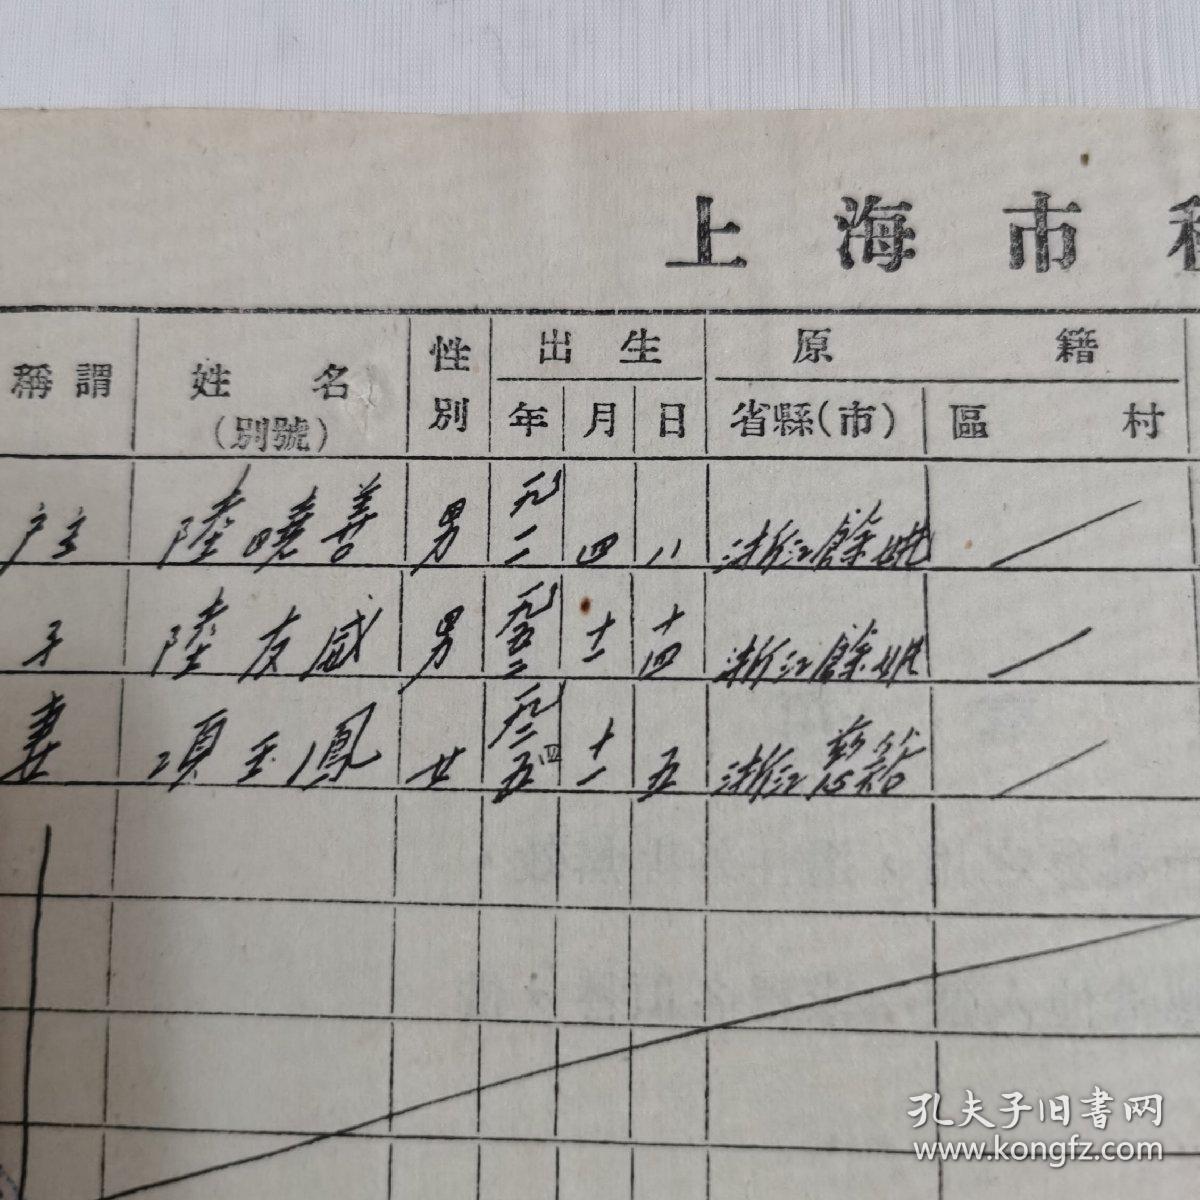 上海市
稱謂 姓名(別號) 性別 出生 年 月 日 原籍 省縣(市) 區村
户主 陸曉善 男 一九一一 四 八 浙江餘姚
子 陸友威 男 一九五二 十一 十四 浙江餘姚
妻 項玉鳳 女 一九二四五 十一 五 浙江慈谿
孔夫子旧书网
www.kongfz.com